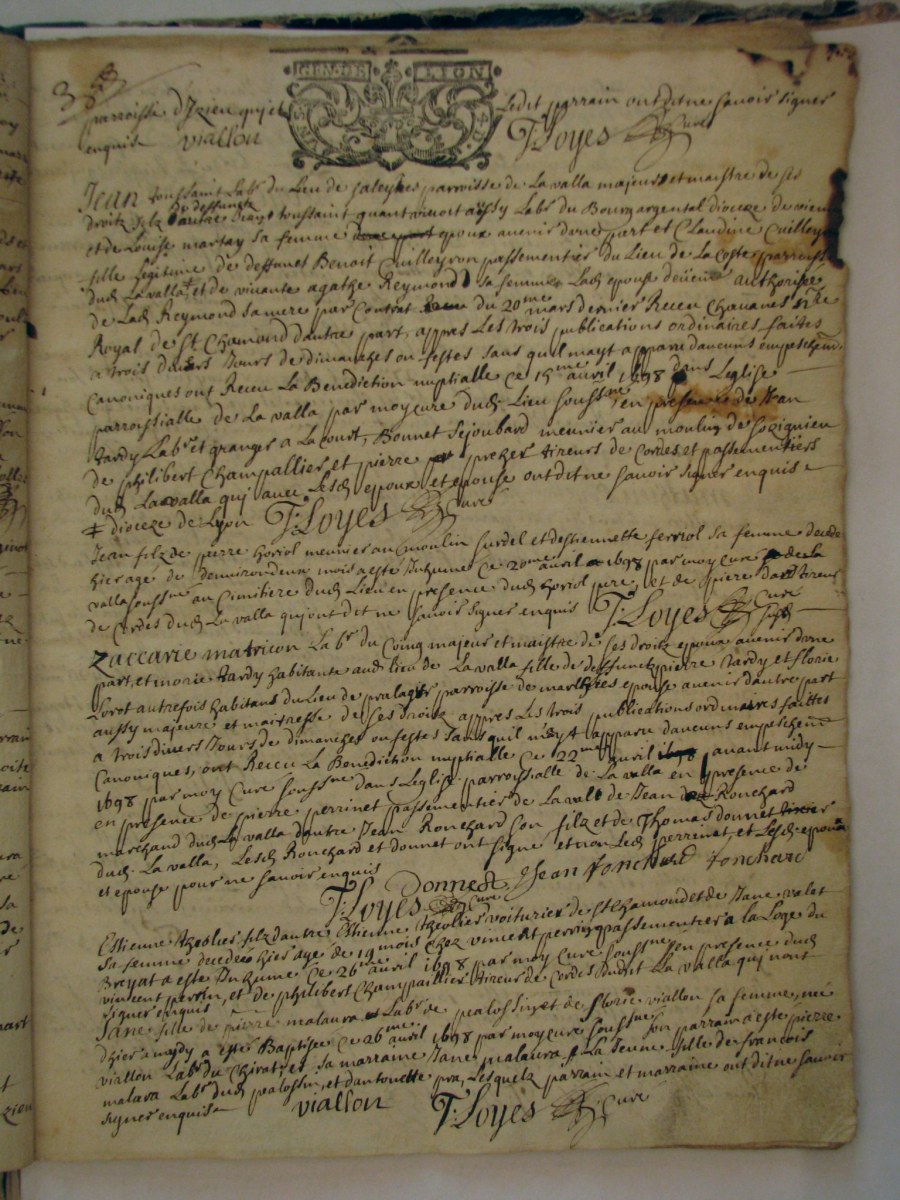 GEN DE LION
parroisse d'Izieu qui et
Ledit parrain ont dit ne savoir signer
enquis viallon
T: Loyes Curé
Jean toussaint Labr du Lieu de parroisse de La valla majeur et maistre de ses
droitz filz deffunctz autre Jean toussaint quant vivoit aussy Labr du Bourg argental dioceze de vienne
et de Louise martay sa femme epoux avenir dune part et Claudine Cuilleyron
fille Legitime de deffunct Benoit Cuilleyron passementier du Lieu de La Coste parroisse
dud La valla ╪ et de vivante agathe Reymond sa femme Lad epouse authorisee
de Lad Reymond sa mere par Contrat du 20me mars dernier Receu Chavanes nre
Royal de St Chamond dautre part, appres Les trois publications ordinaires faites
a trois divers Jours de dimanches ou festes sans quil mayt apparu daucuns empeschemt
Canoniques ont Receu La Benediction nuptialle ce 15me avril 1698 dans Leglise
parroissialle de La valla par moy cure dud Lieu soussne en presence de Jean
tardy Labr et granger a La court, Bonnet Sejoubard meunier au moulin de sozignieu
de philibert Champallier et pierre preher tireurs de Cordes et passementiers
dud La valla qui avec Lesd epoux et epouse ont dit ne savoir signer enquis
╪ dioceze de Lyon T: Loyes Curé
Jean filz de pierre horiol meunier au moulin surdel et destiennette ferriol sa femme decede
hier age de denviron deux mois a este Inhumé ce 20me avril 1698 par moy Cure de La
valla soussne au Cimitiere dud Lieu en presence dud horriol pere, et de pierre tireur
de Cordes dud La valla qui ont dit ne savoir signer enquis T: Loyes Curé
Zaccarie matricon Labr du Coing majeur et maistre de ses droitz epoux avenir dune
part, et marie tardy habitante aud Lieu de La valla fille de deffunctz pierre tardy et florie
Loret autrefois habitans du Lieu de pralager parroisse de marlhes epouse avenir dautre part
aussy majeure et maistresse de ses droitz appres Les trois publications ordinaires faittes
a trois divers Jours de dimanches ou festes sans quil mayt apparu daucuns empeschemt
Canoniques, ont Receu La Benediction nuptialle ce 22me avril 1698 avant midy
1698 par moy Cure soussne dans Leglise parroissialle de La valla en presence de
en presence de pierre perrinet passementier de La valla de Jean Ronchard
marchand dud La valla dautre Jean Ronchard son filz et de Thomas donnet tireur
dud La valla, Lesd Ronchard et donnet ont signé et non Led perrinet et Lesd epoux
et epouse pour ne savoir enquis Donnet Jean Ronchard Ronchard
T: Loyes Curé
Estienne theolier filz dautre Estienne theolier voiturier de St Chamond et de Jane valet
sa femme decede hier age de 19 mois chez vincent perrin passementier a La Loge du
Breyat a este Inhume ce 26me avril 1698 par moy Cure soussne en presence dud
vincent perrin, et de philibert Champallier tireur de Cordes dudit La valla qui nont
signer enquis
Jane fille de pierre malaura Labr de pealossin et de florie viallon sa femme, née
dhier a mydy a este Baptisee ce 26me avril 1698 par moy cure soussne son parrain a este pierre
viallon Labr du Chirat, et sa marraine Jane malaura La Jeune fille de francois
malara Labr dud pealossin, et dantoinette pra, Lesquelz parrain et marraine ont dit ne savoir
signer enquis viallon T: Loyes Curé